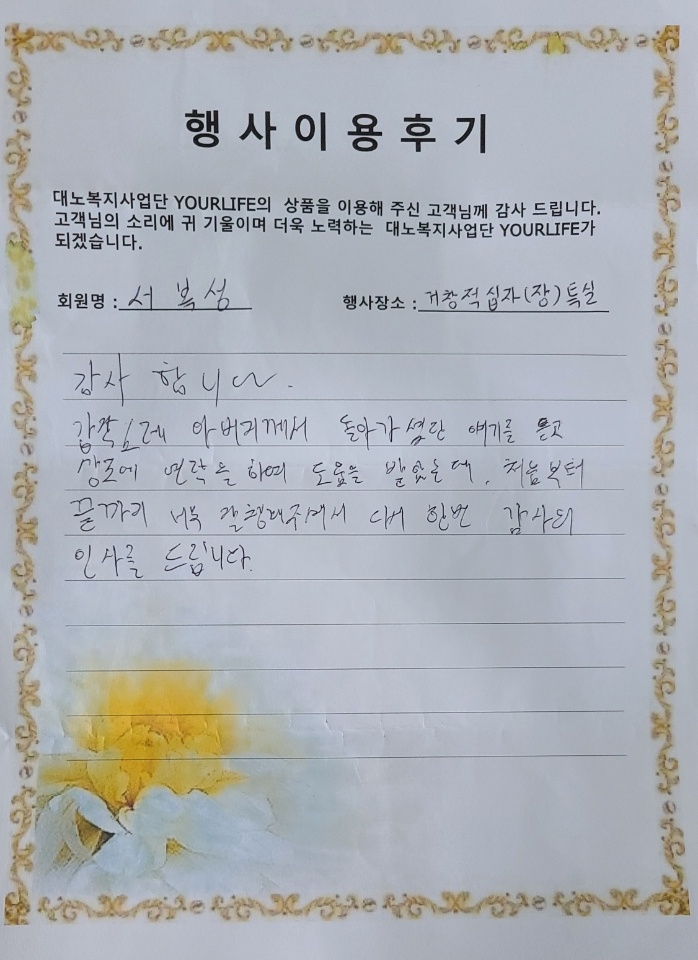 행사이용후기
대노복지사업단 YOURLIFE의 상품을 이용해 주신 고객님께 감사 드립니다.
고객님의 소리에 귀 기울이며 더욱 노력하는 대노복지사업단 YOURLIFE가
되겠습니다.
회원명 : 서복성 행사장소 : 거창적십자(장)특실
감사 합니다.
갑작스레 아버지께서 돌아가셨단 얘기를 듣고
상조에 연락을 하여 도움을 받았는데, 처음부터
끝까지 너무 잘해주셔서 다시 한번 감사의
인사를 드립니다.